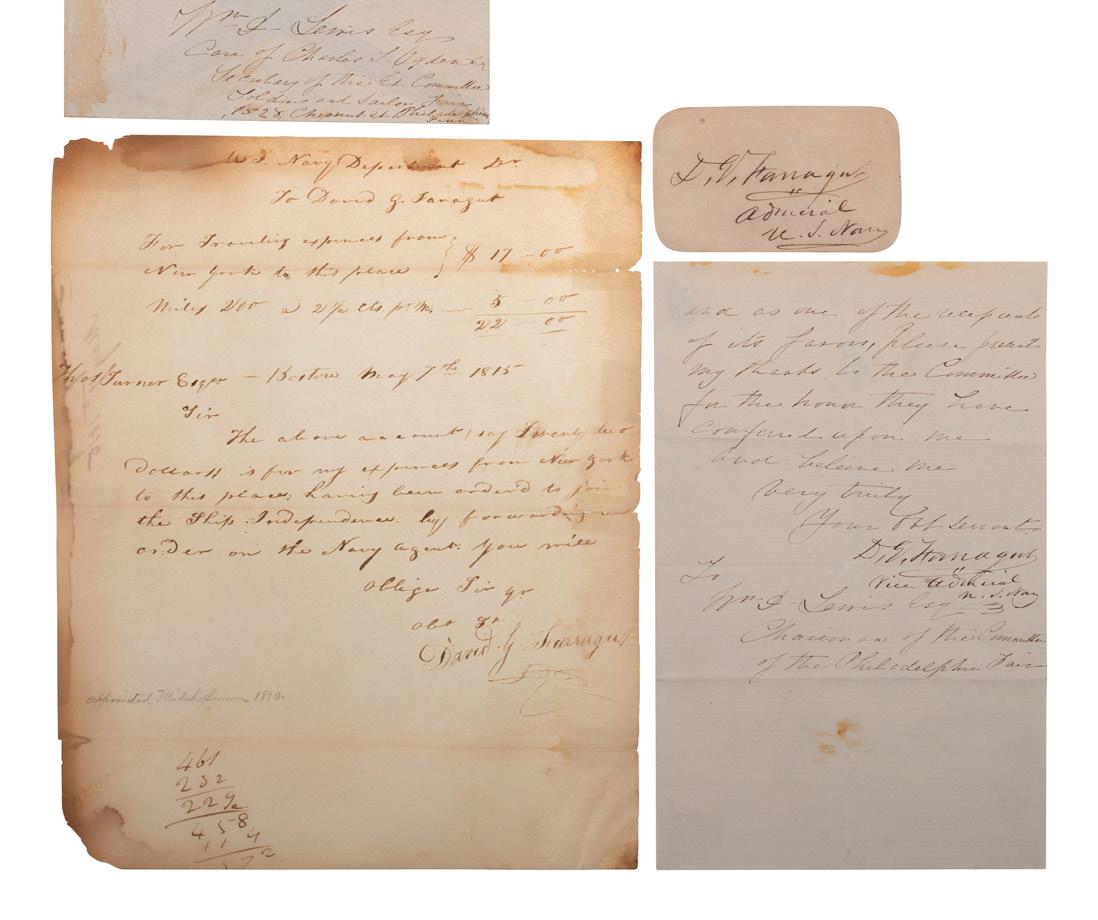 Wm D Lewis Esq
Care of Charles S. Ogden
Secretary of the Ex Committee
Soldiers and Sailors Fair
1528 Chesnut st. Philadelphia
U S. Navy Department Dr.
To David G. Faragut
For Traveling expences from
New York to this place } $ 17 - 00
Miles 200 a 2 1/2 Cts. pr. M. 5 - 00
22 00
Thos Turner Esqr - Boston May 7th 1815
Sir
The above account, say Twenty two
dollars is for my expences from New York
to this place; having been orderd to join
the Ship Independence. by forwarding an
order on the Navy agent. You will
oblige Sir yr
Obt St
David. G. Farragut
appointed Midshipman 1810.
461
232
229
458
D. G. Farragut
Admiral
U. S. Navy
and as one of the recipients
of its favors, please present
my thanks to the Committee
for the honor they have
conferred upon me
and believe me
very truly
Your Obt Servant
D. G. Farragut
Vice Admiral
U. S. Navy
To
Wm D Lewis Esq
Chairman of the Committee
of the Philadelphia Fair